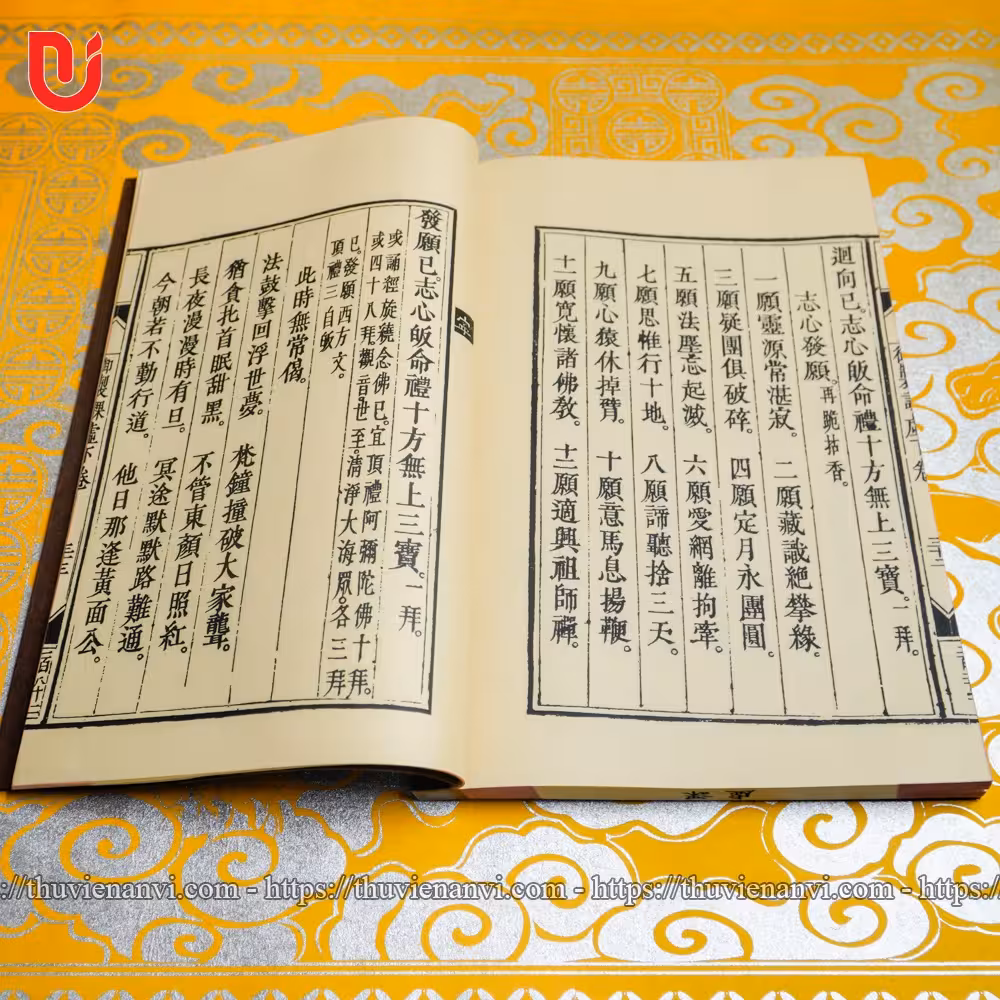 迴向已。志心皈命禮十方無上三寶。一拜。
志心發願。再跪拈香。
一願靈源常湛寂。二願藏識絶攀緣。
三願疑團俱破碎。四願定月永團圓。
五願法塵忘起滅。六願愛網離拘牽。
七願思惟行十地。八願諦聽捨三天。
九願心猿休掉臂。十願意馬息揚鞭。
十一願寬懷諸佛敎。十二願適興祖師禪。
發願已。志心皈命禮十方無上三寶。一拜。
或誦經旋繞念佛已。宜頂禮阿彌陀佛十拜。
或四十八拜。觀音世至。清淨大海眾。各三拜。
已發願西方文。
頂禮三自皈
此時無常偈。
法鼓擊回浮世夢。梵鐘撞破大家聾。
猶貪扥首眠甜黑。不管東顏日照紅。
長夜漫漫時有旦。冥途默默路難通。
今朝若不勤行道。他日那逢黃面公。
三十三
https://thuvienanvi.com - https://thuvienanvi.com - https://thuvienanvi.com